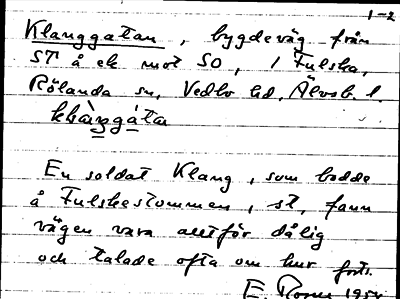 1-2
Klanggatan, bygdeväg från
ST å ek mot SO, i Fulska,
Rölanda sn, Vedbo hd, Älvsb. l.
klàŋgáta
En soldat Klang, som bodde
å Fulskestommen, st, fann
vägen vara alltför dålig
och talade ofta om hur
E 1954